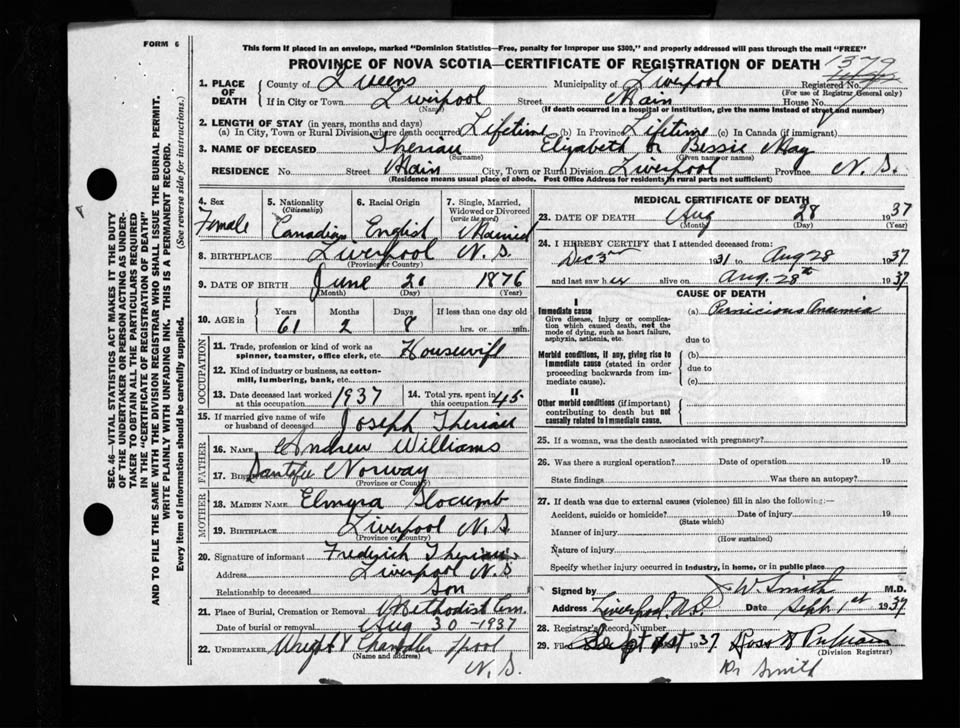 FORM 6
This form if placed in an envelope, marked "Dominion Statistics—Free, penalty for improper use $300," and properly addressed will pass through the mail "FREE"
PROVINCE OF NOVA SCOTIA—CERTIFICATE OF REGISTRATION OF DEATH
1379
1. PLACE OF DEATH County of Queens Municipality of Liverpool Registered No.
(For use of Registrar General only)
If in City or Town Liverpool Street Main House No.
(Name) (If death occurred in a hospital or institution, give name instead of street and number)
2. LENGTH OF STAY (in years, months and days)
(a) In City, Town or Rural Division where death occurred Lifetime (b) In Province Lifetime (c) In Canada (if immigrant)
3. NAME OF DECEASED Theriau Elizabeth or Bessie May
(Surname) (Given name or names)
RESIDENCE No. Street Main City, Town or Rural Division Liverpool Province N. S.
(Residence means usual place of abode. Post Office Address for residents in rural parts not sufficient)
4. Sex Female
5. Nationality (Citizenship) Canadian
6. Racial Origin English
7. Single, Married, Widowed or Divorced (write the word) Married
8. BIRTHPLACE Liverpool N. S.
(Province or Country)
9. DATE OF BIRTH June 20 1876
(Month) (Day) (Year)
10. AGE in Years Months Days If less than one day old
61 2 8 hrs. or min.
OCCUPATION
11. Trade, profession or kind of work as spinner, teamster, office clerk, etc. Housewife
12. Kind of industry or business, as cotton-mill, lumbering, bank, etc.
13. Date deceased last worked at this occupation 1937
14. Total yrs. spent in this occupation 45
15. If married give name of wife or husband of deceased Joseph Theriau
FATHER
16. NAME Andrew Williams
17. Norway
(Province or Country)
MOTHER
18. MAIDEN NAME Elmyra Slocumb
19. BIRTHPLACE Liverpool N. S
(Province or Country)
20. Signature of informant Fredrick Theriau
Address Liverpool N. S
Relationship to deceased Son
21. Place of Burial, Cremation or Removal Methodist Cem.
Date of burial or removal Aug 30 - 1937
22. UNDERTAKER Wright & Chandler pool
(Name and address)
N. S.
MEDICAL CERTIFICATE OF DEATH
23. DATE OF DEATH Aug 28 1937
(Month) (Day) (Year)
24. I HEREBY CERTIFY that I attended deceased from:
Dec 3rd 1931 to Aug 28 1937
and last saw her alive on Aug. 28th 1937
CAUSE OF DEATH
I
Immediate cause (a) Pernicious Anaemia
Give disease, injury or complication which caused death, not the mode of dying, such as heart failure, asphyxia, asthenia, etc.
due to
Morbid conditions, if any, giving rise to immediate cause (stated in order proceeding backwards from immediate cause).
(b)
due to
(c)
II
Other morbid conditions (if important) contributing to death but not causally related to immediate cause.
25. If a woman, was the death associated with pregnancy?
26. Was there a surgical operation? Date of operation 19
State findings Was there an autopsy?
27. If death was due to external causes (violence) fill in also the following:—
Accident, suicide or homicide? Date of injury 19
(State which)
Manner of injury
(How sustained)
Nature of injury
Specify whether injury occurred in industry, in home, or in public place
Signed by J. W. Smith M.D.
Address Liverpool, N.S. Date Sept. 1st 1937
28. Registrar's Record Number
29. Filed Sept 1st 1937
(Division Registrar)
Dr Smith
SEC. 46—VITAL STATISTICS ACT MAKES IT THE DUTY
OF THE UNDERTAKER OR PERSON ACTING AS UNDER-
TAKER TO OBTAIN ALL THE PARTICULARS REQUIRED
IN THE "CERTIFICATE OF REGISTRATION OF DEATH"
AND TO FILE THE SAME WITH THE DIVISION REGISTRAR WHO SHALL ISSUE THE BURIAL PERMIT.
WRITE PLAINLY WITH UNFADING INK. THIS IS A PERMANENT RECORD.
Every item of information should be carefully supplied. (See reverse side for instructions.)